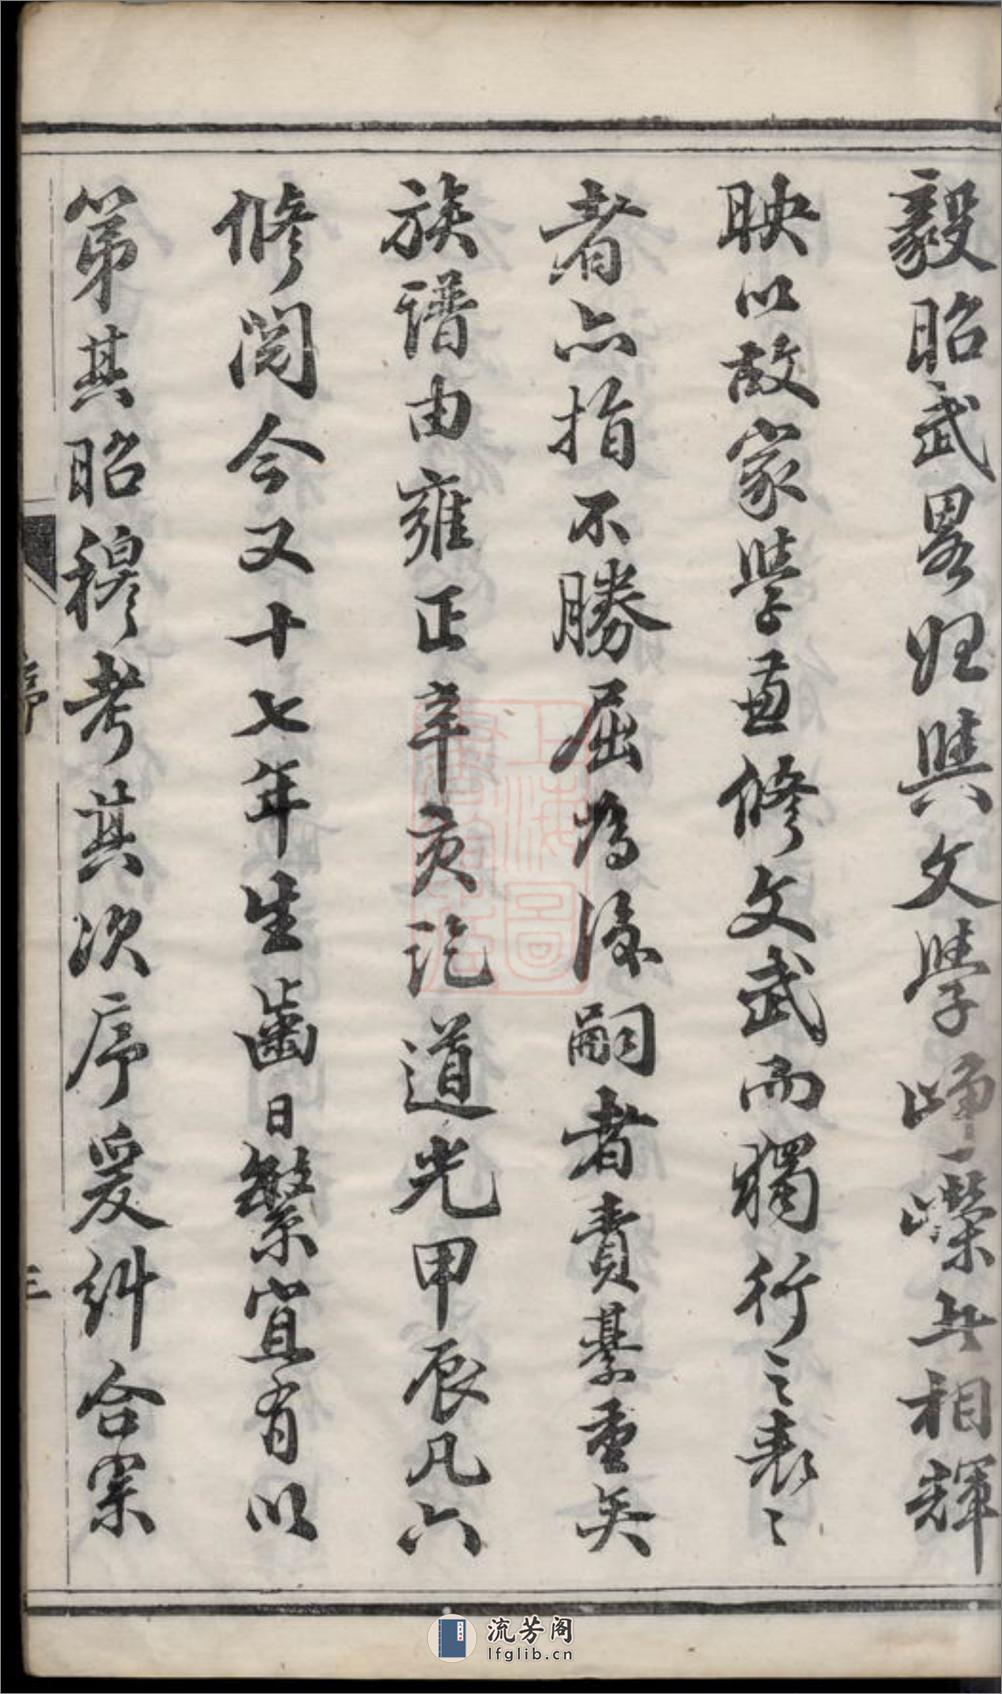 毅昭武畧與文學崢嶸共相輝
映以故家學兼修文武而獨行之表〻
者亦指不勝屈為後嗣者責綦重矣
族譜由雍正辛亥訖道光甲辰凡六
修閱今又十七年生齒日繁宜有以
第其昭穆考其次序爰糾合宗
序
三
上海圖書館藏
流芳阁
lfglib.cn